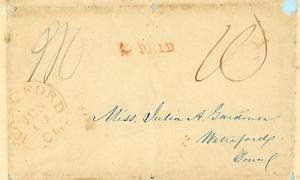 PAID
10
FORD
JUN
Miss. Julia A. Gardiner
Waterford
Conn!